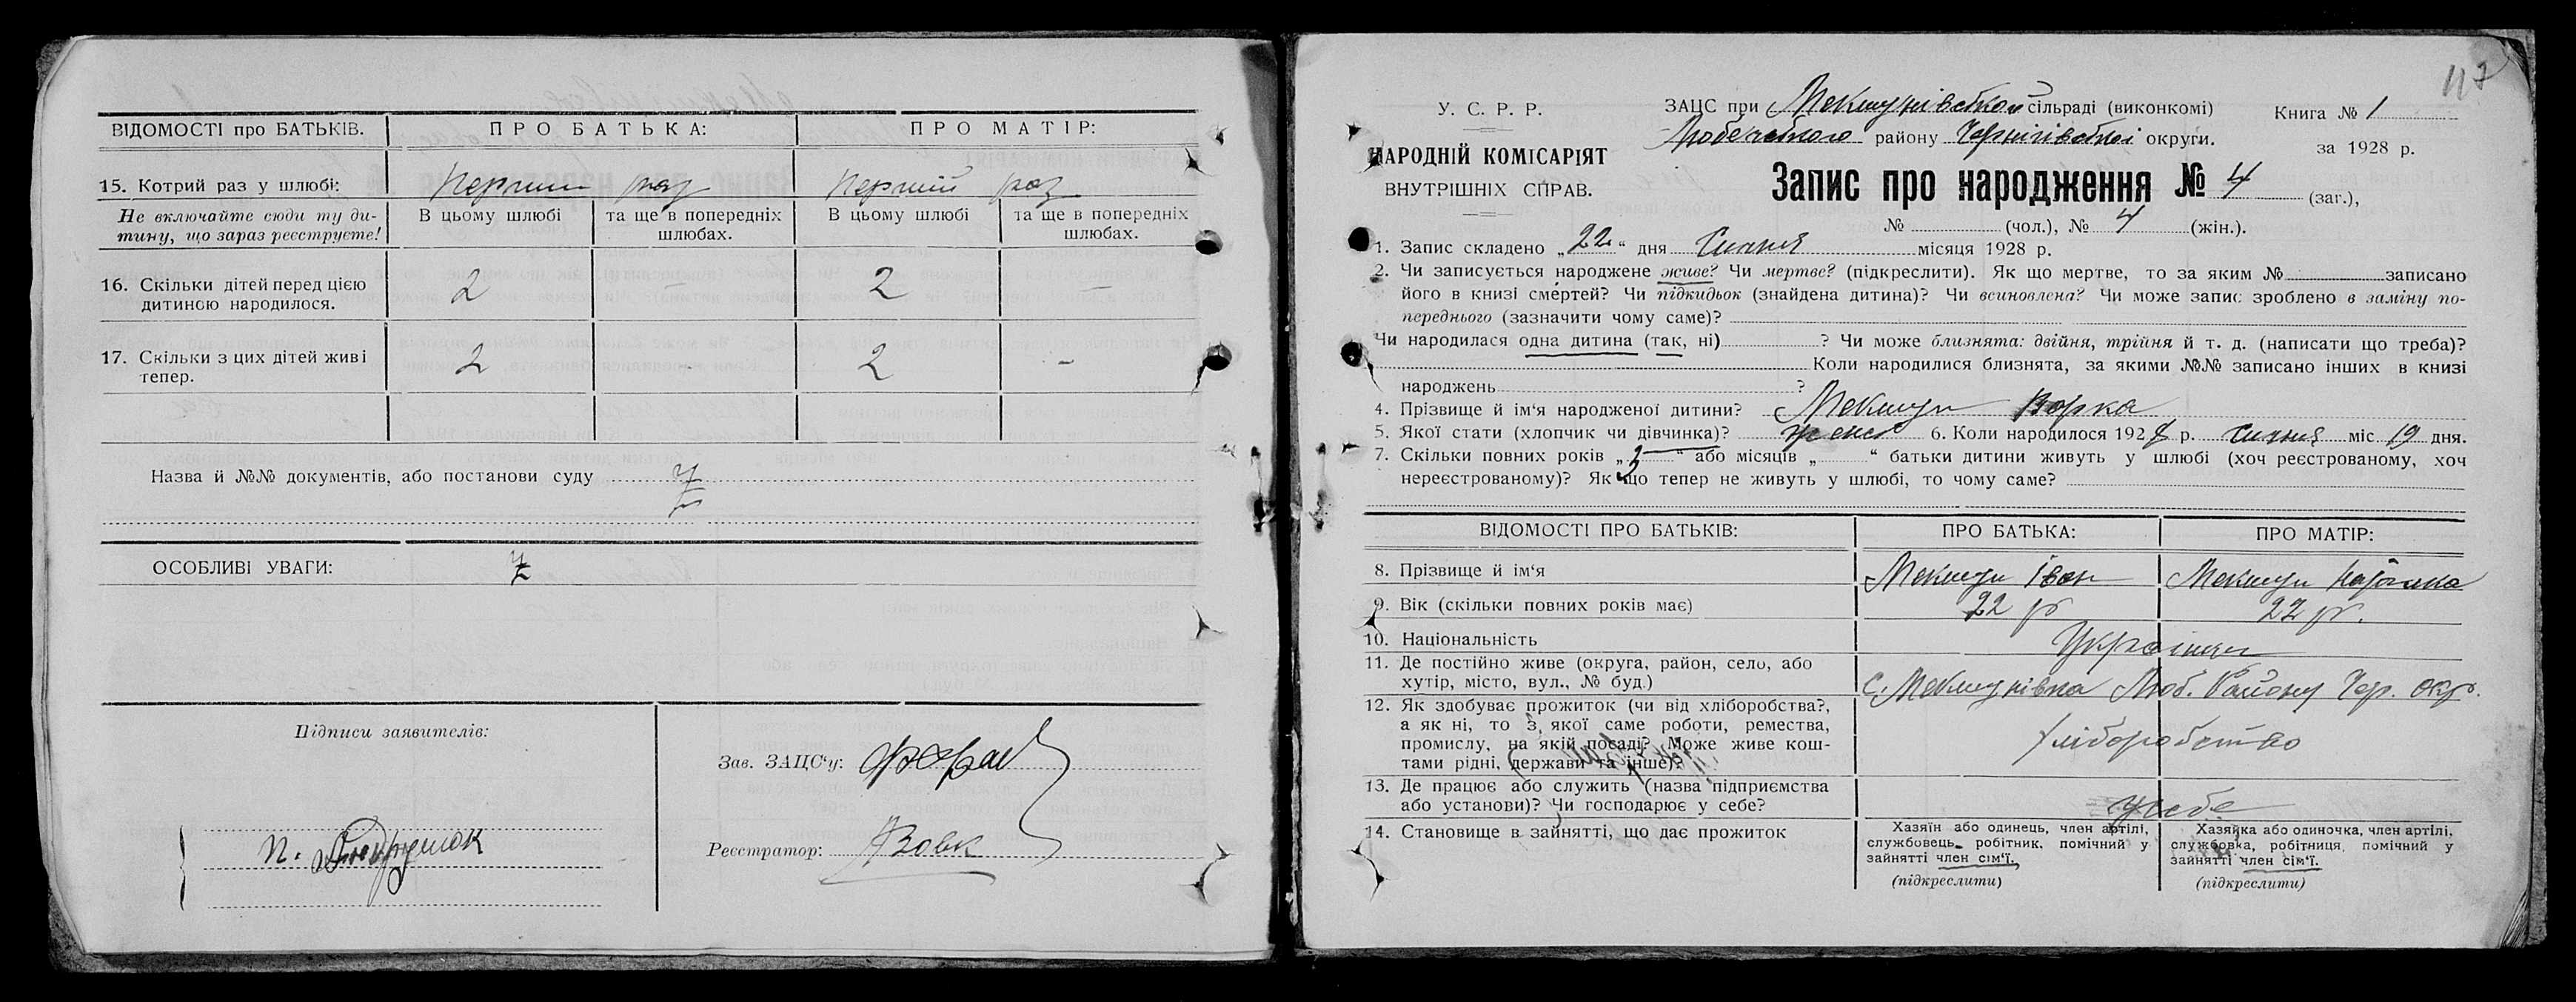 ВІДОМОСТІ про БАТЬКІВ. ПРО БАТЬКА: ПРО МАТІР:
15. Котрий раз у шлюбі: Перший раз Перший раз
Не включайте сюди ту ди- В цьому шлюбі та ще в попередніх В цьому шлюбі та ще в попередніх
тину, що зараз реєструєте! шлюбах. шлюбах.
16. Скільки дітей перед цією 2 — 2 —
дитиною народилося.
17. Скільки з цих дітей живі 2 - 2 -
тепер.
Назва й №№ документів, або постанови суду
ОСОБЛИВІ УВАГИ:
Підписи заявителів:
Зав. ЗАЦС‘у:
Реєстратор: Вовк
117
У. С. Р. Р.
НАРОДНІЙ КОМІСАРІЯТ
ВНУТРІШНІХ СПРАВ.
ЗАЦС при Мекшунівській сільраді (виконкомі)
Любечського району Чернігівської округи.
Книга № 1
за 1928 р.
Запис про народження № 4 (заг.),
№ (чол.), № 4 (жін.).
1. Запис складено „22“ дня Січня місяця 1928 р.
2. Чи записується народжене живе? Чи мертве? (підкреслити). Як що мертве, то за яким № записано
його в книзі смертей? Чи підкидьок (знайдена дитина)? Чи всиновлена? Чи може запис зроблено в заміну по-
переднього (зазначити чому саме)?
Чи народилася одна дитина (так, ні) ? Чи може близнята: двійня, трійня й т. д. (написати що треба)?
Коли народилися близнята, за якими №№ записано інших в книзі
народжень ?
4. Прізвище й ім‘я народженої дитини? Мекшун Варка
5. Якої стати (хлопчик чи дівчинка)? женс 6. Коли народилося 1928 р. Січня міс 19 дня.
7. Скільки повних років „ “ або місяців „ “ батьки дитини живуть у шлюбі (хоч реєстрованому, хоч
нереєстрованому)? Як що тепер не живуть у шлюбі, то чому саме?
ВІДОМОСТІ ПРО БАТЬКІВ: ПРО БАТЬКА: ПРО МАТІР:
8. Прізвище й ім‘я Мекшун Іван Мекшун
9. Вік (скільки повних років має) 22 р 22 р.
10. Національність Українці
11. Де постійно живе (округа, район, село, або
хутір, місто, вул., № буд.) с. Мекшунівка Люб. Району Чер. окр.
12. Як здобуває прожиток (чи від хліборобства?,
а як ні, то з якої саме роботи, ремества,
промислу, на якій посаді? Може живе кош-
тами рідні, держави та інше)? хліборобство
13. Де працює або служить (назва підприємства
або установи)? Чи господарює у себе? у себе
14. Становище в зайнятті, що дає прожиток
Хазяїн або одинець, член артілі,
службовець, робітник, помічний у
зайнятті член сім‘ї.
(підкреслити)
Хазяйка або одиночка, член артілі,
службовка, робітниця, помічний у
зайнятті член сім‘ї.
(підкреслити)